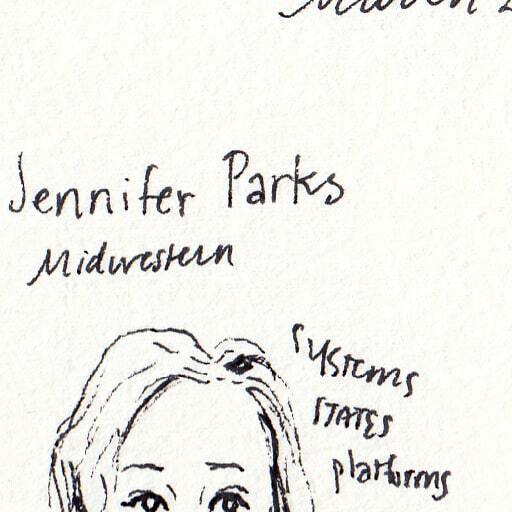 March 2
Jennifer Parks
Midwestern
systems
STATES
platforms